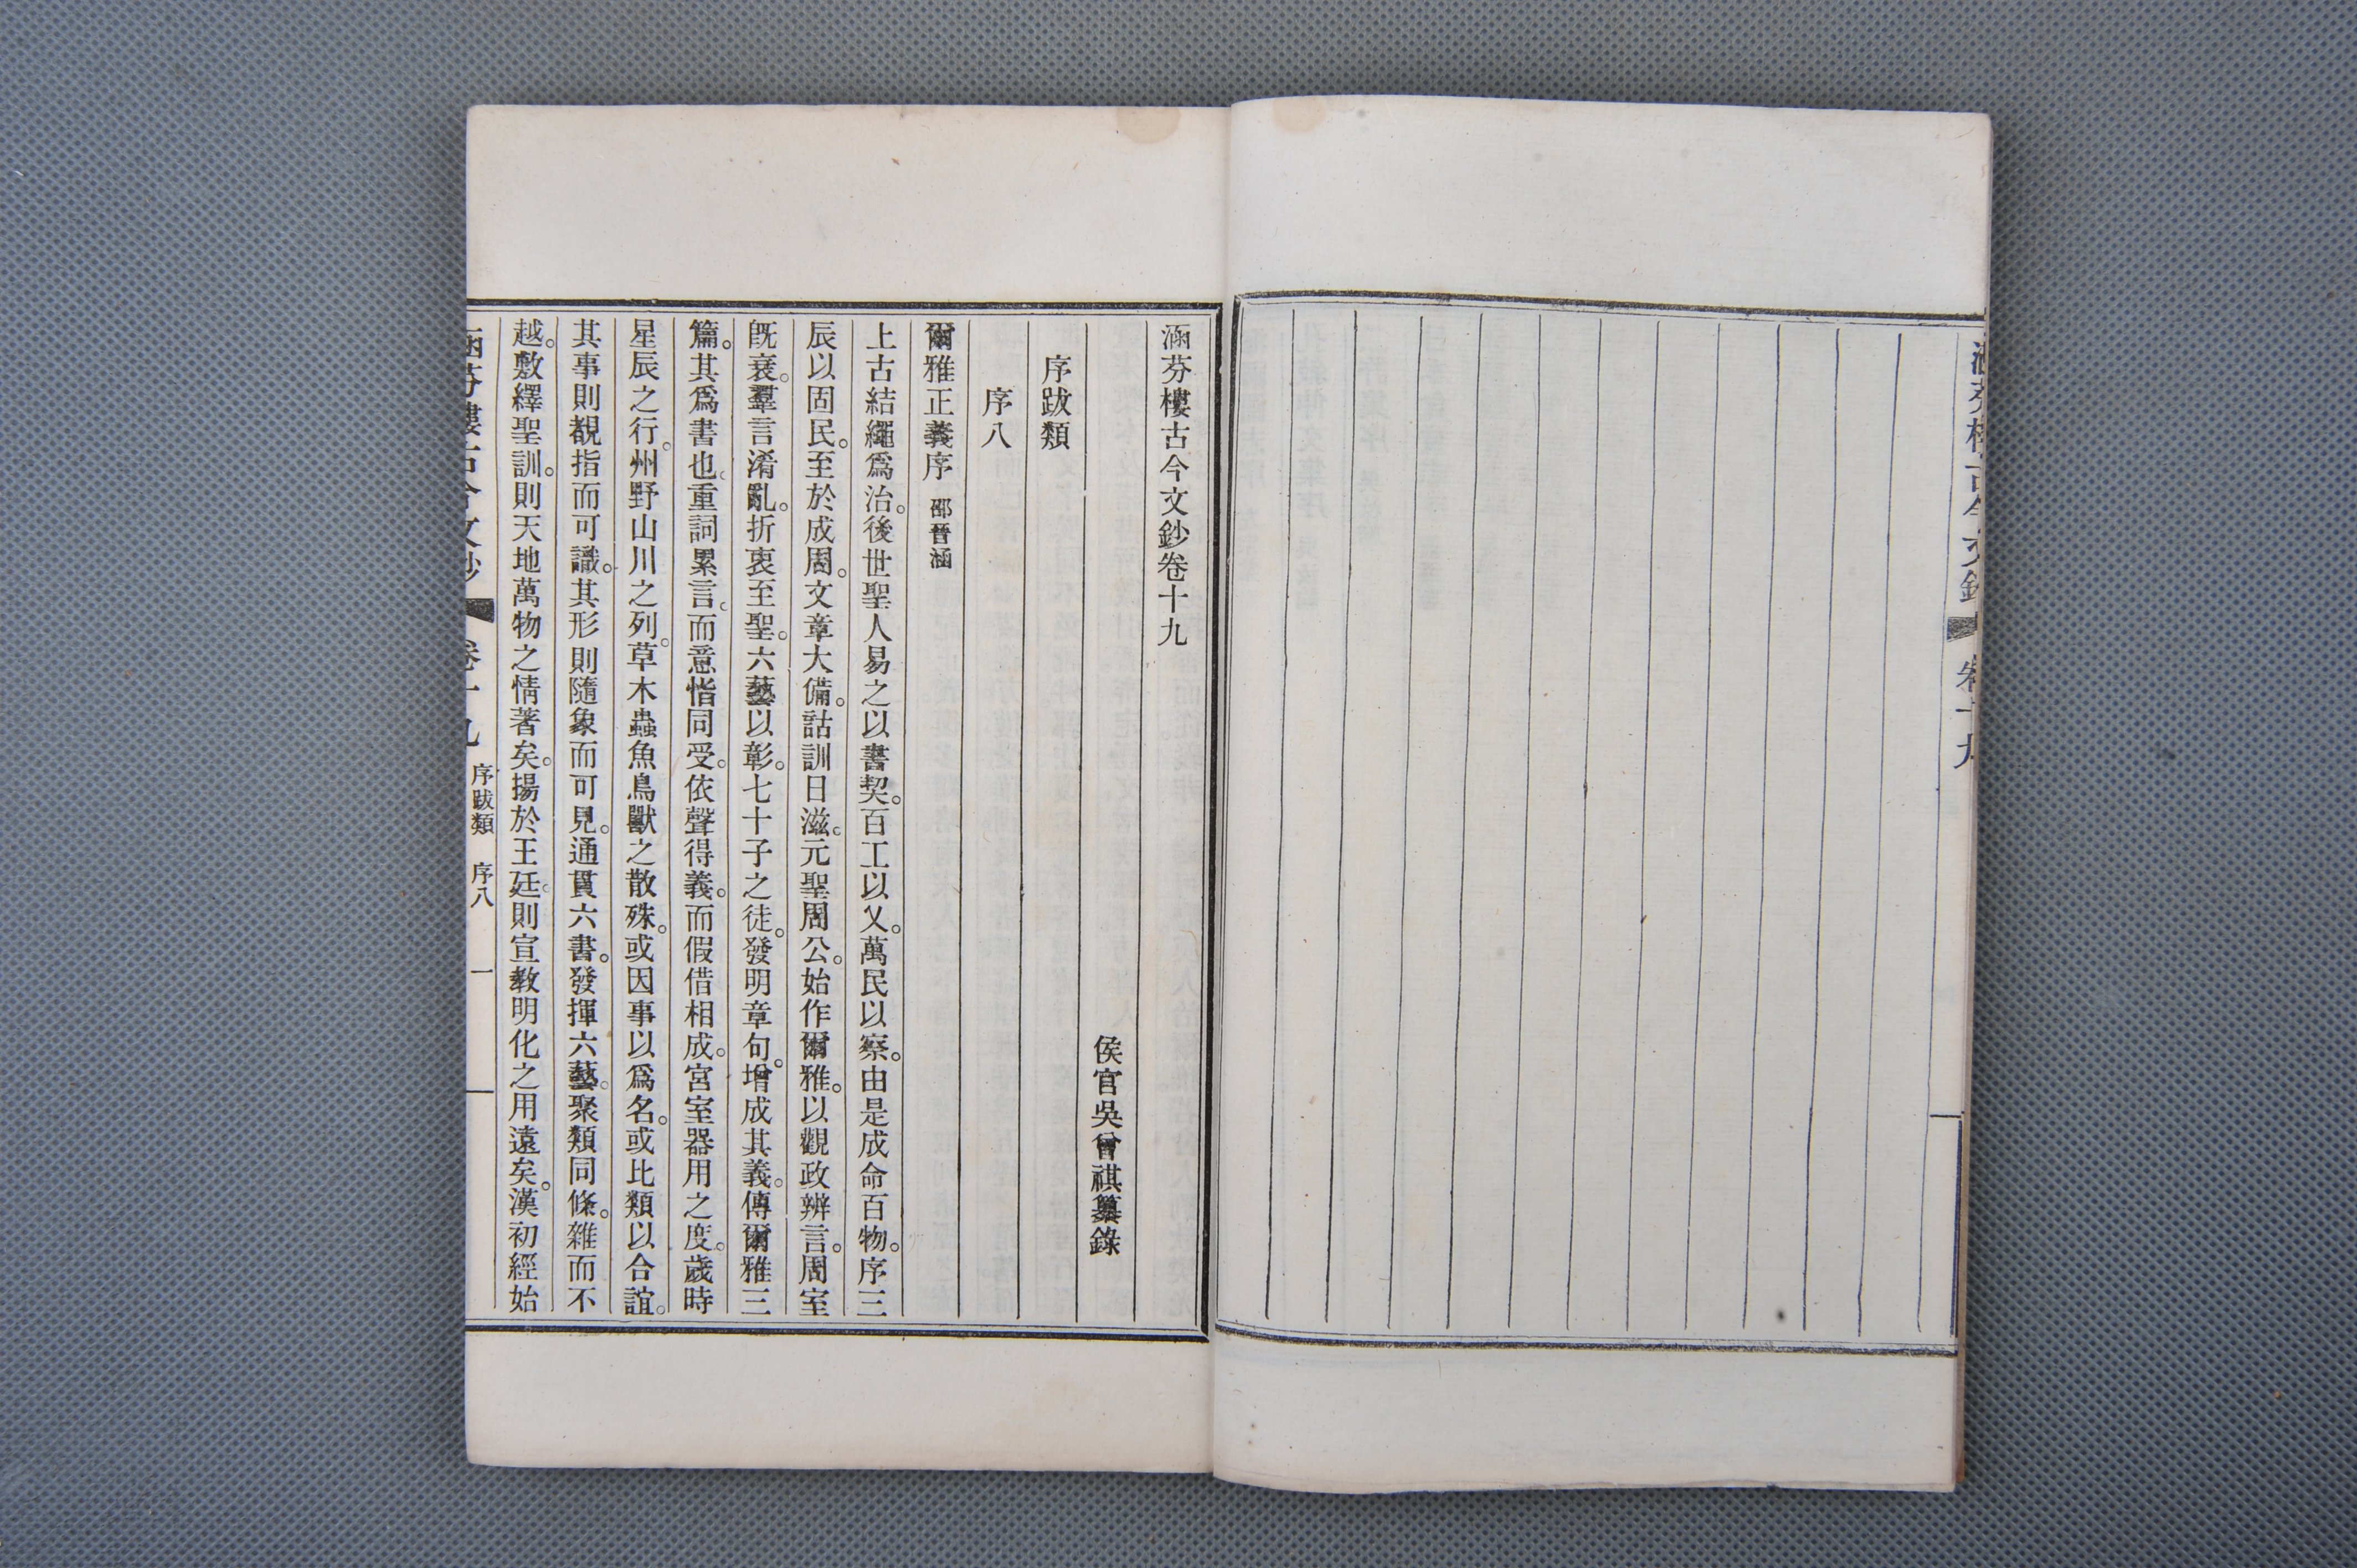 涵芬樓古今文鈔 卷十九
涵芬樓古今文鈔卷十九
侯官吳曾祺纂錄
序跋類
序八
爾雅正義序 邵晉涵
上古結繩爲治。後世聖人易之以書契。百工以乂。萬民以察。由是成命百物。序三
辰以固民。至於成周。文章大備。詁訓日滋。元聖周公。始作爾雅。以觀政辨言。周室
旣衰。羣言淆亂。折衷至聖。六藝以彰。七十子之徒。發明章句。增成其義。傳爾雅三
篇。其爲書也。重詞累言。而意恉同受。依聲得義。而假借相成。宮室器用之度。歲時
星辰之行。州野山川之列。草木蟲魚鳥獸之散殊。或因事以爲名。或比類以合誼。
其事則覩指而可識。其形則隨象而可見。通貫六書。發揮六藝。聚類同條。雜而不
越。敷繹聖訓。則天地萬物之情著矣。揚於王廷。則宣教明化之用遠矣。漢初經始
涵芬樓古今文鈔 卷十九 序跋類 序八 一